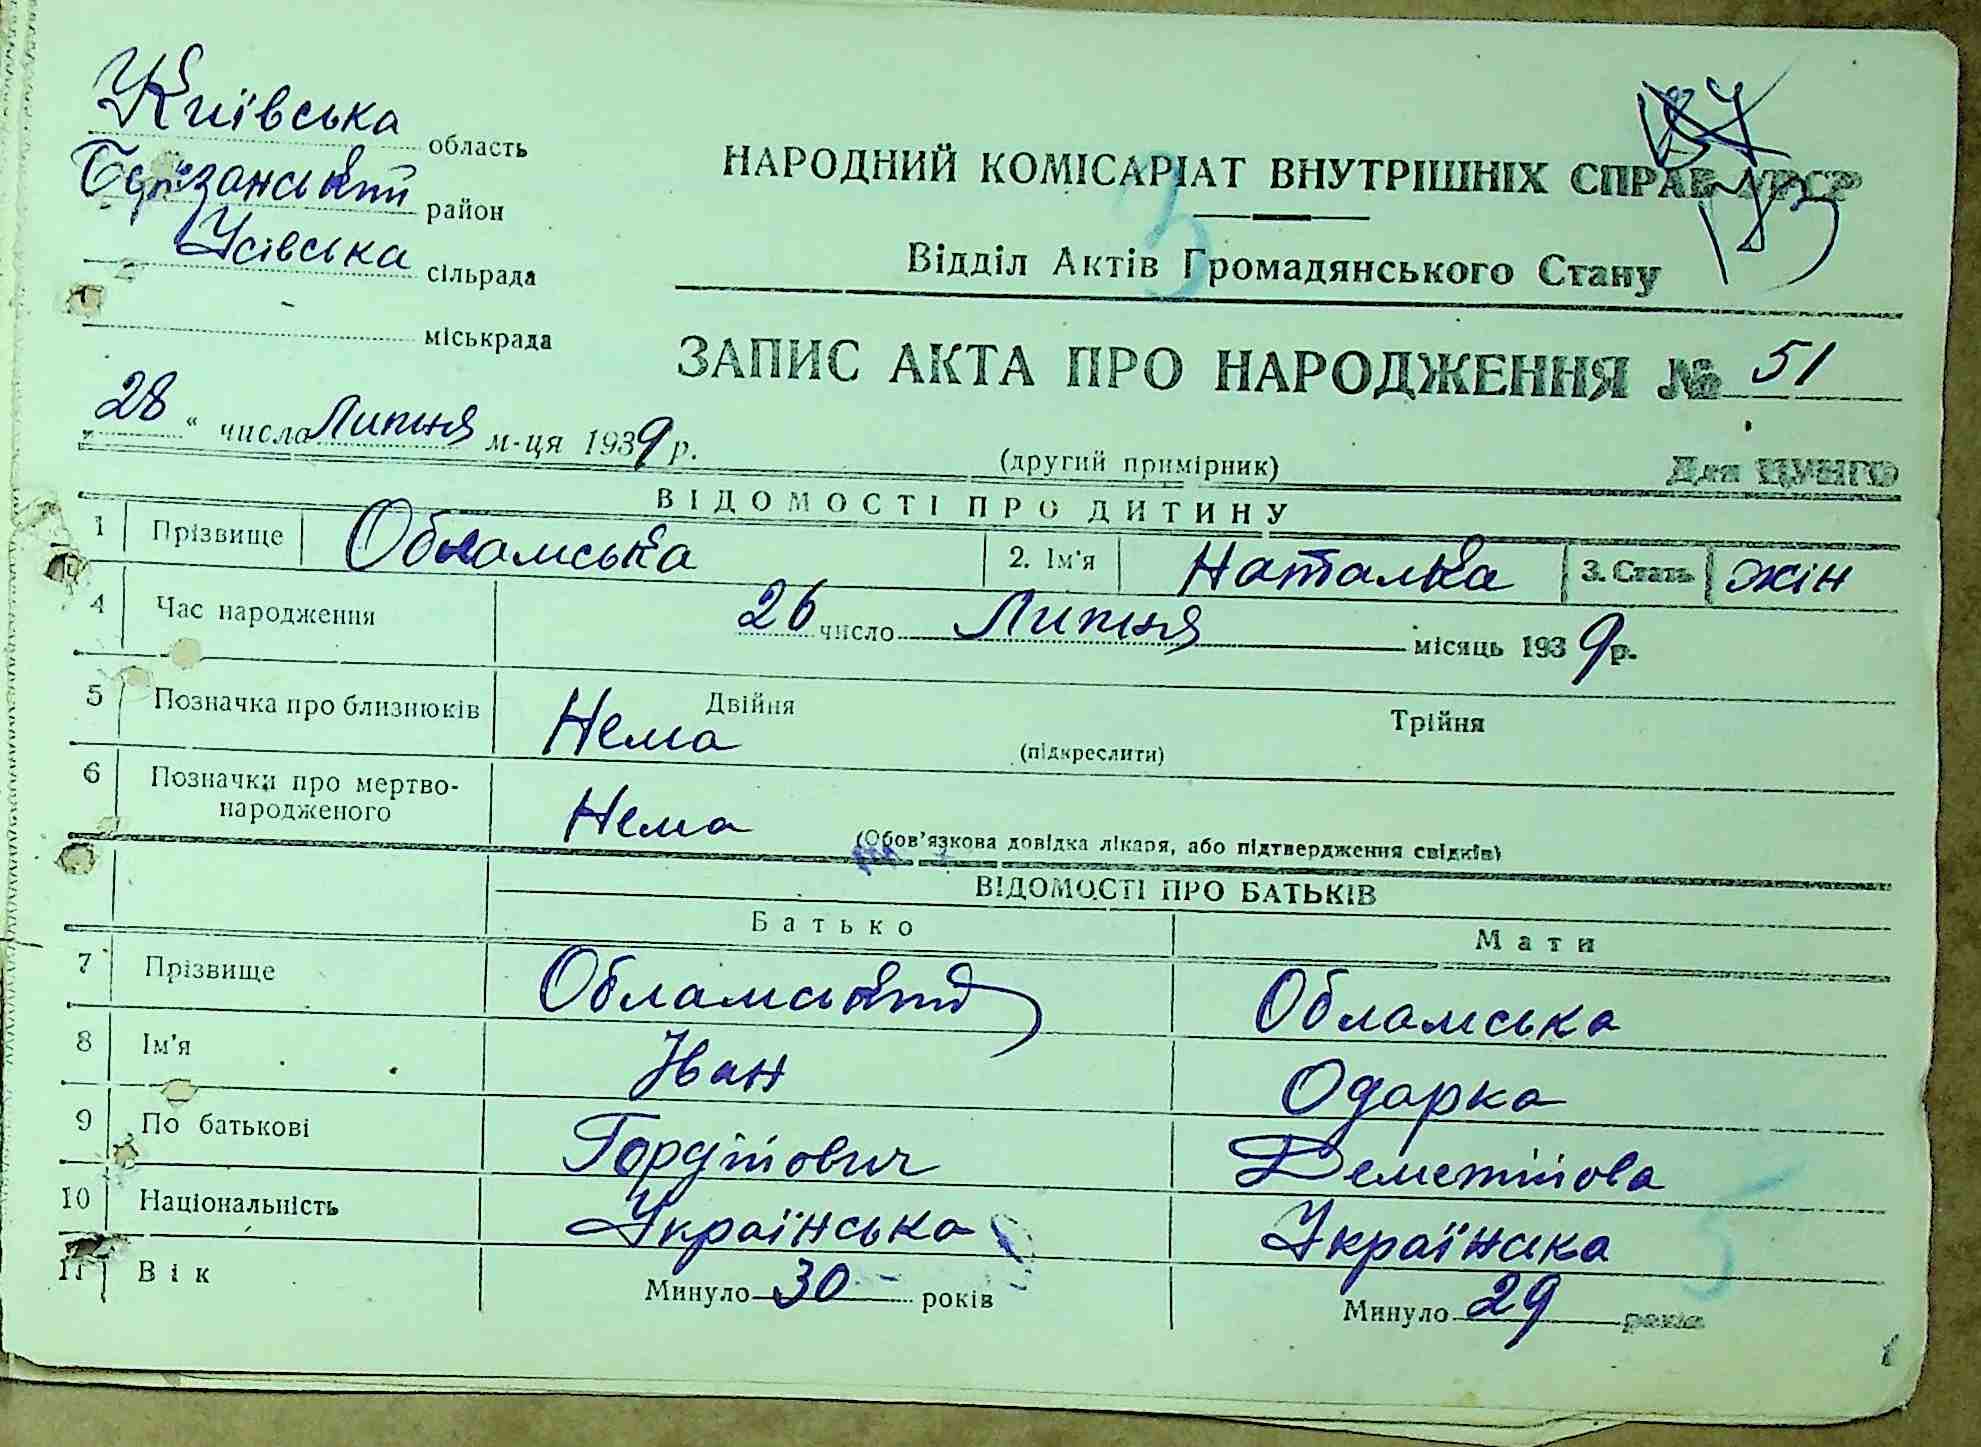 Київська область
Березанський район
Усівська сільрада
міськрада
НАРОДНИЙ КОМІСАРІАТ ВНУТРІШНІХ СПРАВ УРСР
173
Відділ Актів Громадянського Стану
ЗАПИС АКТА ПРО НАРОДЖЕННЯ № 51
„28“ число Липня м-ця 1939 р.
(другий примірник)
Для ЦУНГО
ВІДОМОСТІ ПРО ДИТИНУ
1 Прізвище Обламська 2. Ім'я Наталка 3. Стать жін
4 Час народження 26 число Липня місяць 1939 р.
5 Позначка про близнюків Нема Двійня Трійня
(підкреслити)
6 Позначки про мертво-
народженого Нема (Обов'язкова довідка лікаря, або підтвердження свідків)
ВІДОМОСТІ ПРО БАТЬКІВ
Батько Мати
7 Прізвище Обламський Обламська
8 Ім'я Іван Одарка
9 По батькові Гордійович
10 Національність Українська Українська
11 Вік Минуло 30 років Минуло 29 років